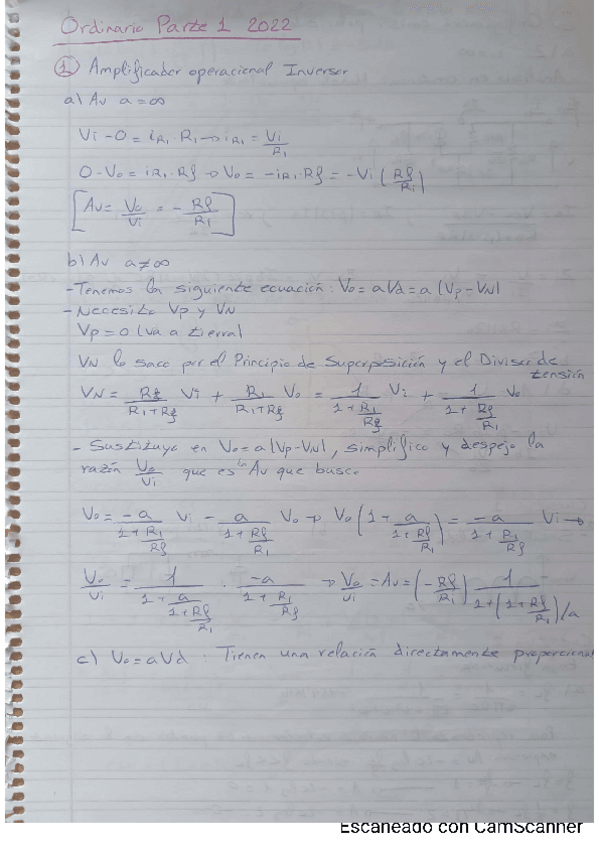 Ordinario Parte 1 2022
① Amplificador operacional Inversor
a) Av a=∞
Vi-0 = iR1·R1 → iR1 = Vi/R1
0-Vo = iR1·Rf → Vo = -iR1·Rf = -Vi (Rf/R1)
[Av = Vo/Vi = -Rf/R1]
b) Av a≠∞
-Tenemos la siguiente ecuación: Vo = aVd = a(Vp-VN)
-Necesito Vp y VN
Vp=0 (va a tierra)
VN lo saco por el Principio de Superposición y el Divisor de
tensión
VN = Rf/(R1+Rf) Vi + R1/(R1+Rf) Vo = 1/(1+R1/Rf) Vi + 1/(1+Rf/R1) Vo
- Sustituyo en Vo=a(Vp-VN), simplifico y despejo la
razón Vo/Vi que es la Av que busco
Vo = -a/(1+R1/Rf) Vi - a/(1+Rf/R1) Vo → Vo(1+a/(1+Rf/R1)) = -a/(1+R1/Rf) Vi →
Vo/Vi = 1/(1+a/(1+Rf/R1)) · -a/(1+R1/Rf) → Vo/Vi = Av = (-Rf/R1) 1/(1+(1+Rf/R1)/a)
c) Vo = aVd. Tienen una relación directamente proporcional
Escaneado con CamScanner